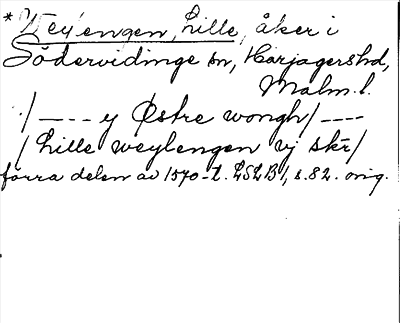 *Vey'engen, Lille, åker i
Södervidinge sn, Harjagers hd,
Malm. l.
/---- y Østre wongh/----
/ Lille weylengen vj skr/
förra delen av 1570-t. LSLB1, s. 82. orig.